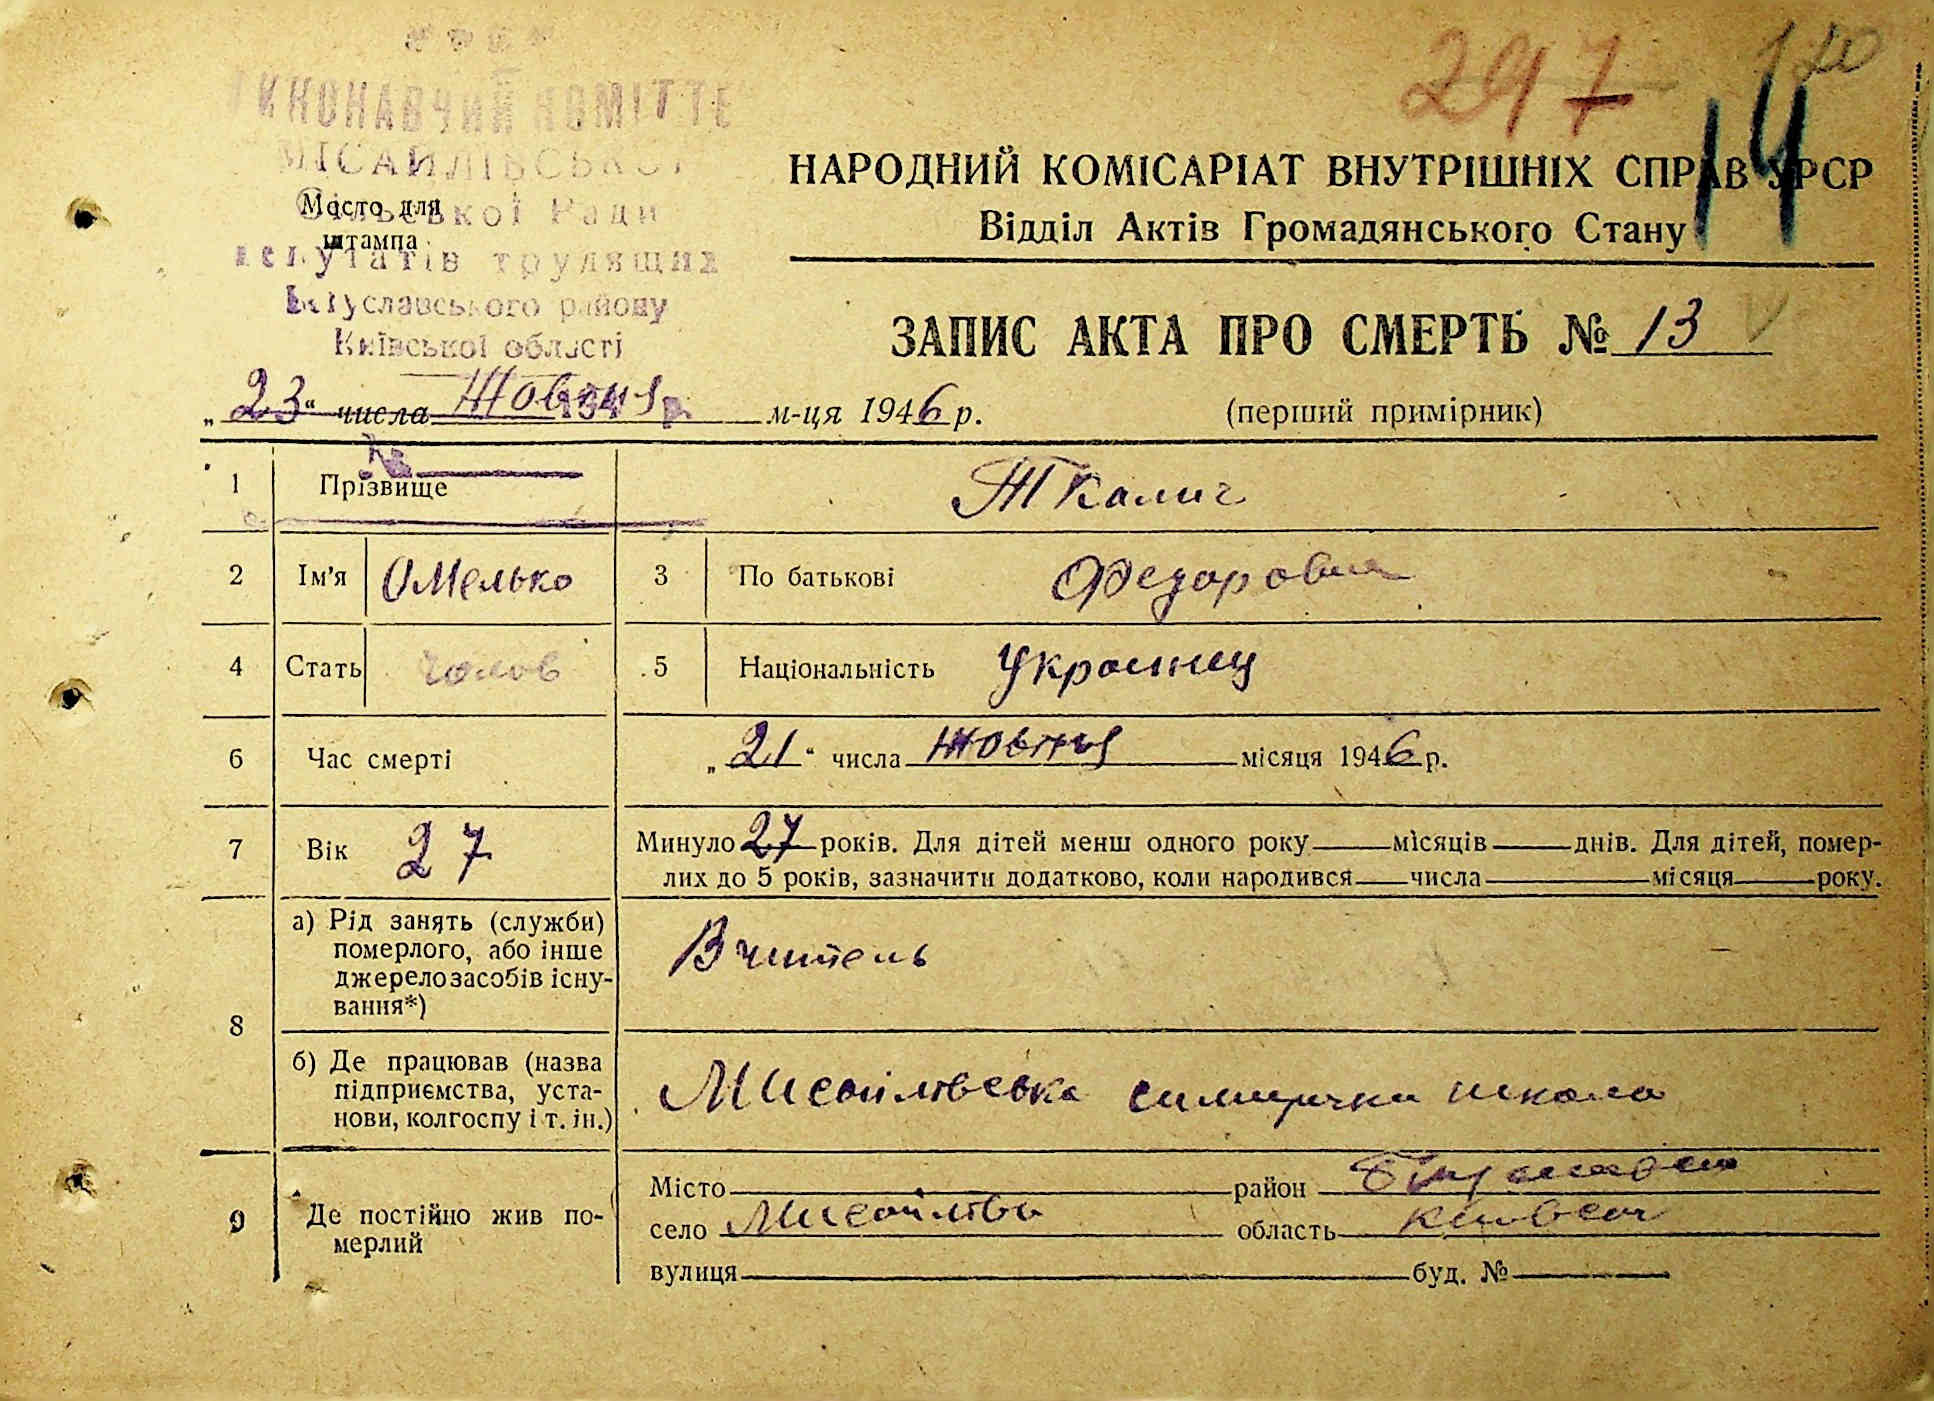 297
14
НАРОДНИЙ КОМІСАРІАТ ВНУТРІШНІХ СПРАВ УРСР
Відділ Актів Громадянського Стану
Місто для
штампа
МІСАЙЛІВСЬКОЇ
Сільської Ради
депутатів трудящих
Богуславського району
Київської області
ЗАПИС АКТА ПРО СМЕРТЬ № 13
„23“ числа Жовтня м-ця 1946 р.
(перший примірник)
1 Прізвище Ткалич
2 Ім'я Омелько 3 По батькові Федорович
4 Стать Чолов 5 Національність Українец
6 Час смерті „21“ числа Жовтня місяця 1946 р.
7 Вік 27 Минуло 27 років. Для дітей менш одного року місяців днів. Для дітей, помер-
лих до 5 років, зазначити додатково, коли народився числа місяця року.
8 а) Рід занять (служби)
померлого, або інше
джерело засобів існу-
вання*)
Вчитель
б) Де працював (назва
підприємства, уста-
нови, колгоспу і т. ін.)
Мисайлівська семирічна школа
9 Де постійно жив по-
мерлий
Місто район
село Мисайлівка область Київська
вулиця буд. №